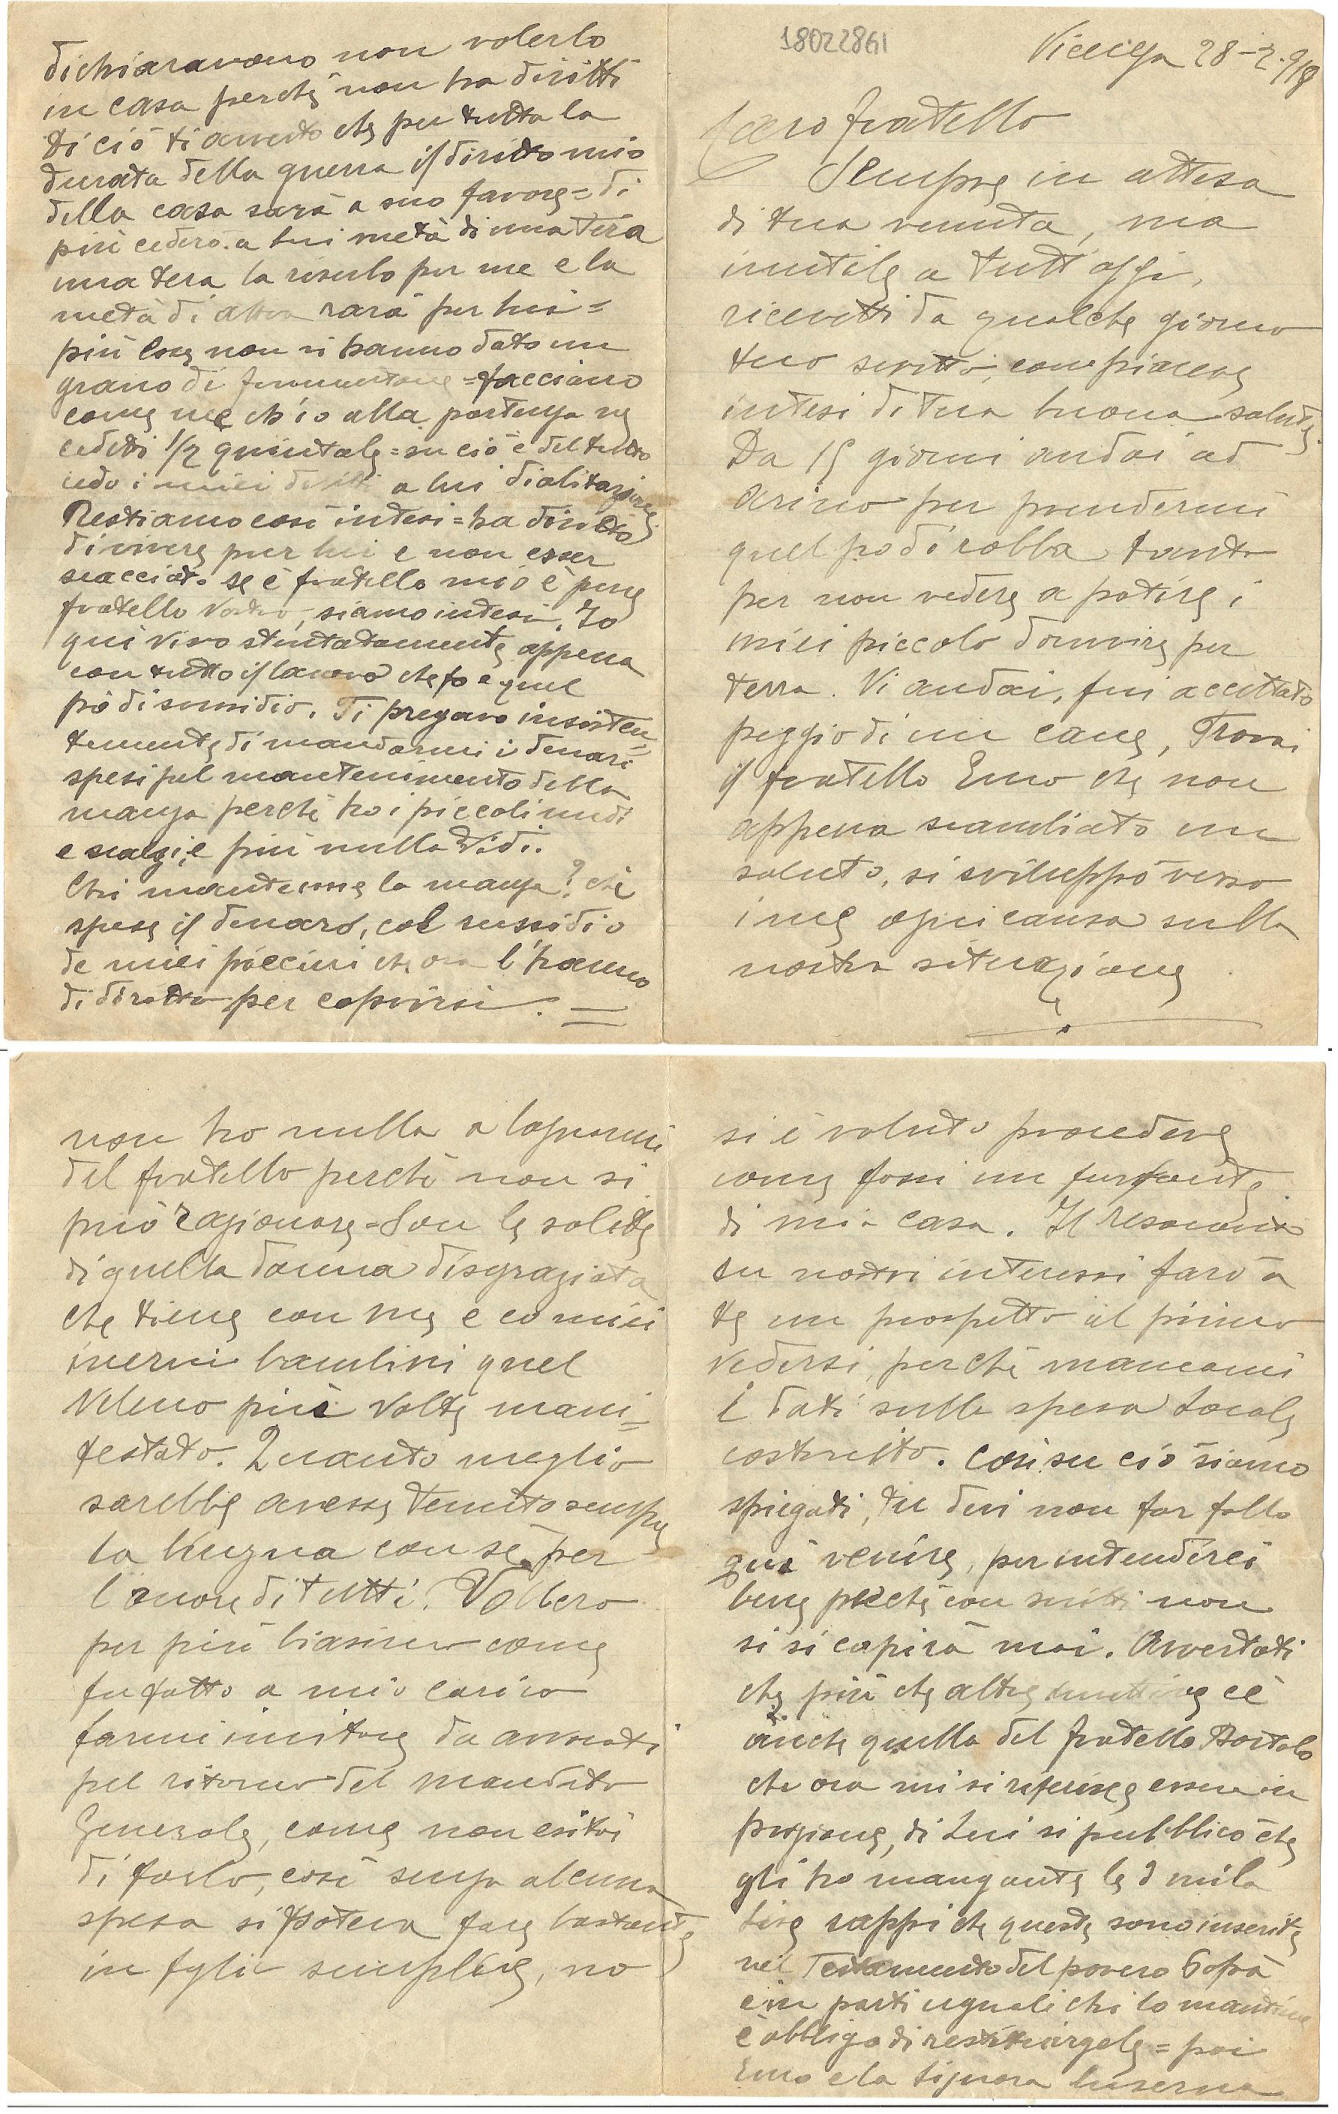 18022861
Vicenza 28-2-918
Caro fratello
Sempre in attesa
di tua venuta, ma
inutile a tutt'oggi.
ricevetti da qualche giorno
tuo scritto, con piacere
intesi di tua buona salute,
Da 15 giorni andai ad
arino per prendermi
quel po di robba tanto
per non vedere a patire i
miei piccolo dormire per
terra. Vi andai, fui accettato
peggio di un cane, Trovai
il fratello Emo che non
appena scambiato un
saluto, si sviluppò verso
i me ogni causa sulla
nostra situazione
non ho nulla a lagnarmi
del fratello perchè non si
può ragionare = Son le solite
di quella donna disgraziata
che tiene con me e co miei
inermi bambini quel
veleno più volte mani=
festato. Quanto meglio
sarebbe avesse tenuto sempre
la lingua con sè per
l'onore di tutti. Vollero
per più biasimo come
fu fatto a mio carico
farmi invitare da avvocati
pel ritorno del mandato
Generale, come non esitai
di farlo, così senza alcuna
spesa si poteva fare bastante
in foglio semplice, no
si è voluto procedere
come fossi un furfante
di mia casa. Il resoconto
su nostri interessi farò a
te un prospetto al primo
vedersi, perchè mancami
i dati sulla spesa locale
costruito. Così su ciò siamo
spiegati, tu devi non far fallo
qui venire, per intenderci
bene perchè con scritti non
si si capirà mai. Avvertoti
che più che altre cè
anche quella del fratello Bortolo
che ora mi si riferisce essere in
prigione, di Lui si pubblicò che
gli ho mangiante le 2 mila
lire sappi che queste sono inserite
nel Testamento del povero Papà
e in parti uguali chi lo mantiene
è obbligo di restituirgele = poi
Emo e la signora Luserna
dichiaravano non volerlo
in casa perchè non ha diritti
Di ciò ti avverto che per tutta la
durata della guerra il diritto mio
della casa sarà a suo favore = di
più cederò a lui metà di una Tera
una tera la riserbo per me e la
metà di altra sarà per lui =
più Essi non si hanno dato un
grano di formentone = facciano
come me ch'io alla partenza ne
cedetti 1/2 quintale = su ciò è del tutto
cedo i miei diritti a lui d'abitazione
Restiamo così intesi = ha diritto
di vivere pur lui e non esser
scacciato se è fratello mio è pure
fratello vostro, siamo intesi. Io
qui vivo stentatamente appena
con tutto il lavoro che fo e quel
pò di sussidio. Ti pregavo insisten=
temente di mandarmi i denari
spesi pel mantenimento della
manza perchè ho i piccoli nudi
e scalzi, e più nulla vidi.
Chi mantenne la manza? chi
spese il denaro, col sussidio
de miei piccini che ora l'hanno
di diritto per coprirsi. =